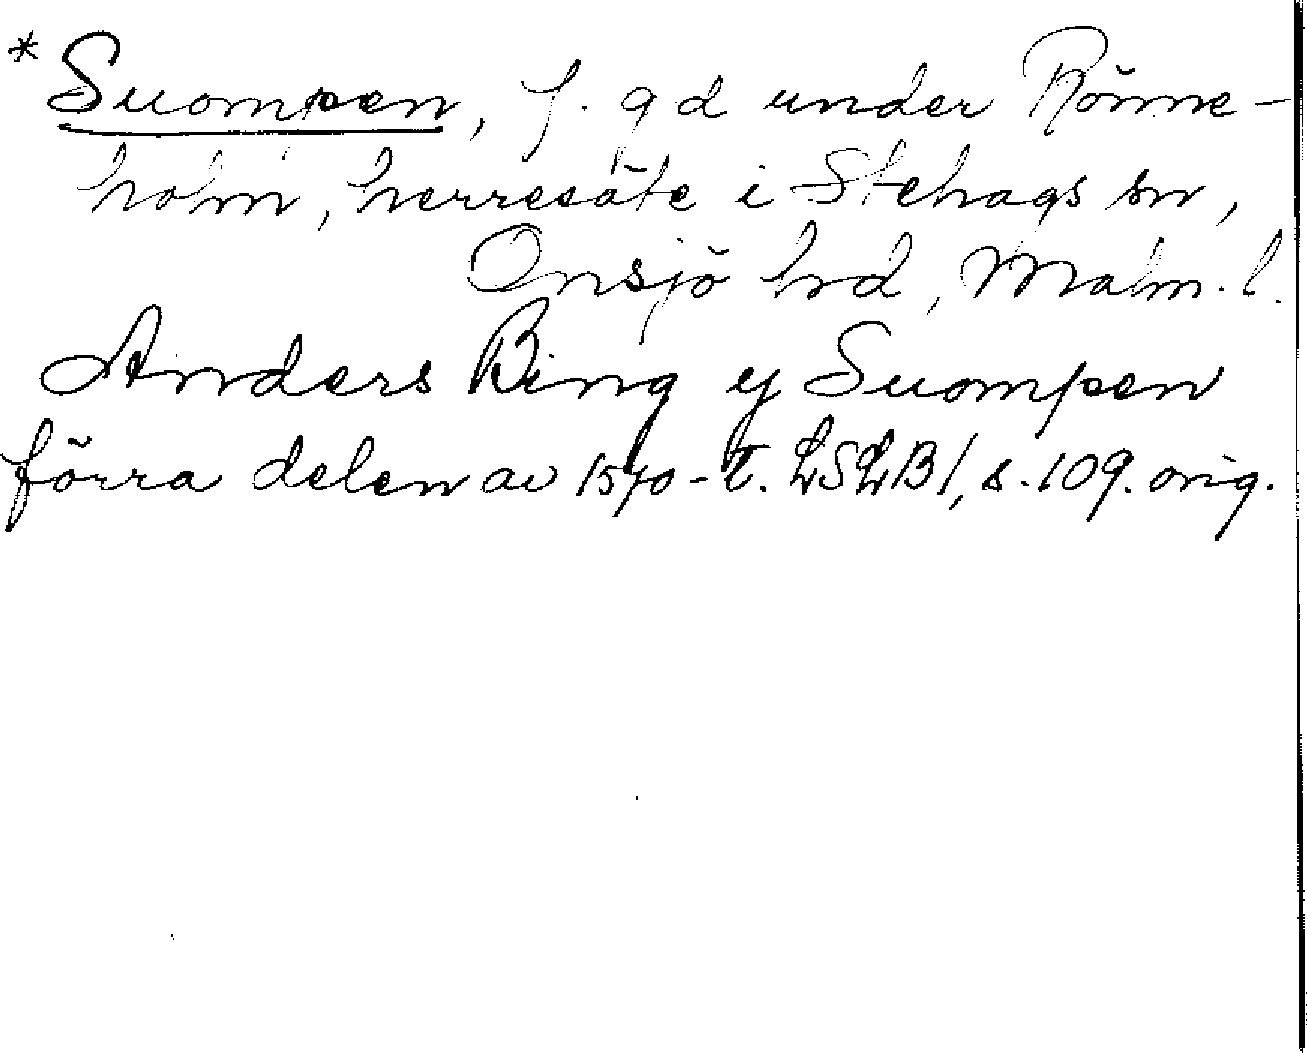 * Suompen, f. gd under Rönne-
holm, herresäte i Stehags sn,
Onsjö hrd, Malm. l.
Anders Bing y Suompen
förra delen av 1570-t. LSLB1, s. 109. orig.